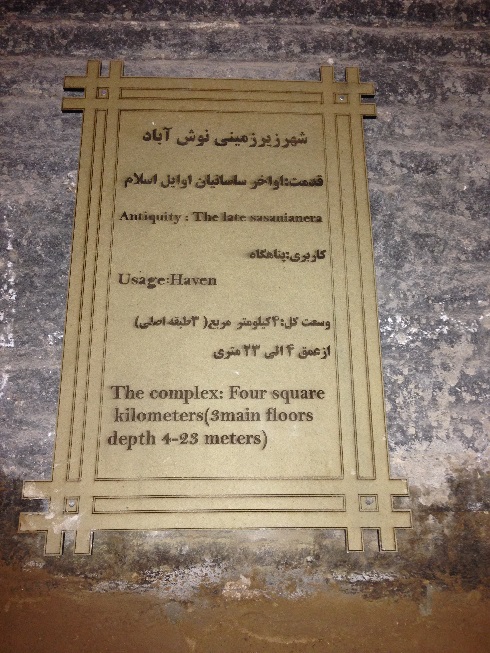 شهرزیرزمینی نوش آباد
قدمت:اواخر ساسانیان اوایل اسلام
Antiquity : The late sasanianera
کاربری:پناهگاه
Usage:Haven
وسعت کل:۴کیلومتر مربع( ۳طبقه اصلی)
ازعمق ۴ الی ۲۳ متری
The complex: Four square
kilometers(3main floors
depth 4-23 meters)